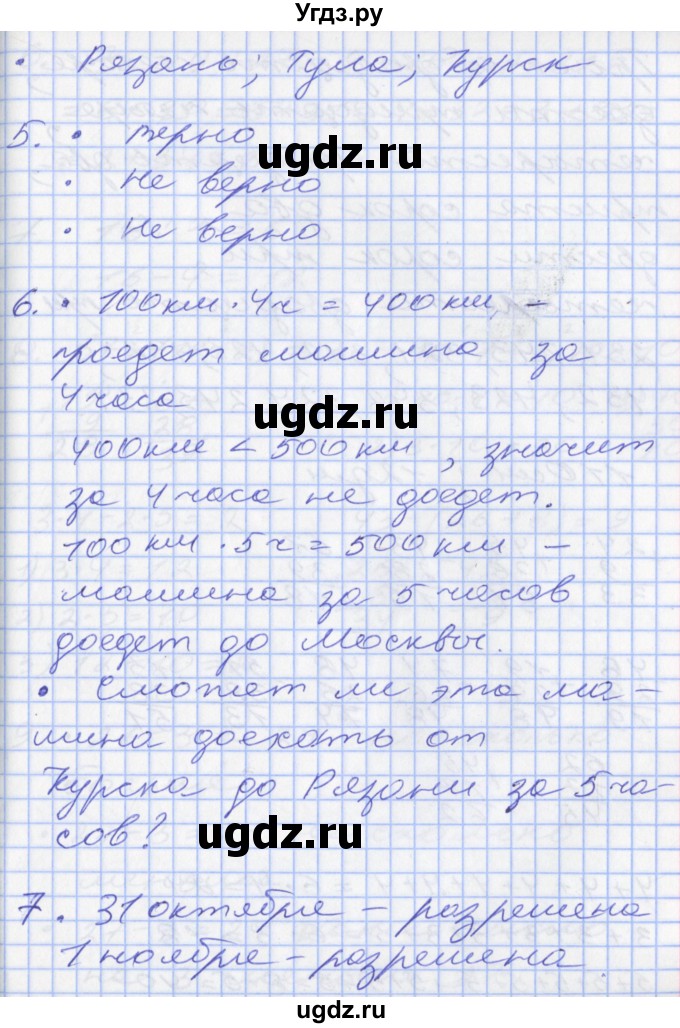 Угдз.ру
• Рязань; Тула; Курск
5. • верно
ugdz.ru
• не верно
• не верно
6. • 100км · 4ч = 400км, –
проедет машина за
4 часа
ugdz.ru
400км < 500км, значит
за 4 часа не доедет.
100км · 5ч = 500км –
машина за 5 часов
доедет до Москвы.
• Сможет ли эта ма-
шина доехать от
Курска до Рязани за 5 ча-
сов?
ugdz.ru
7. 31 октября – разрешена
1 ноября – разрешена
ugdz.ru